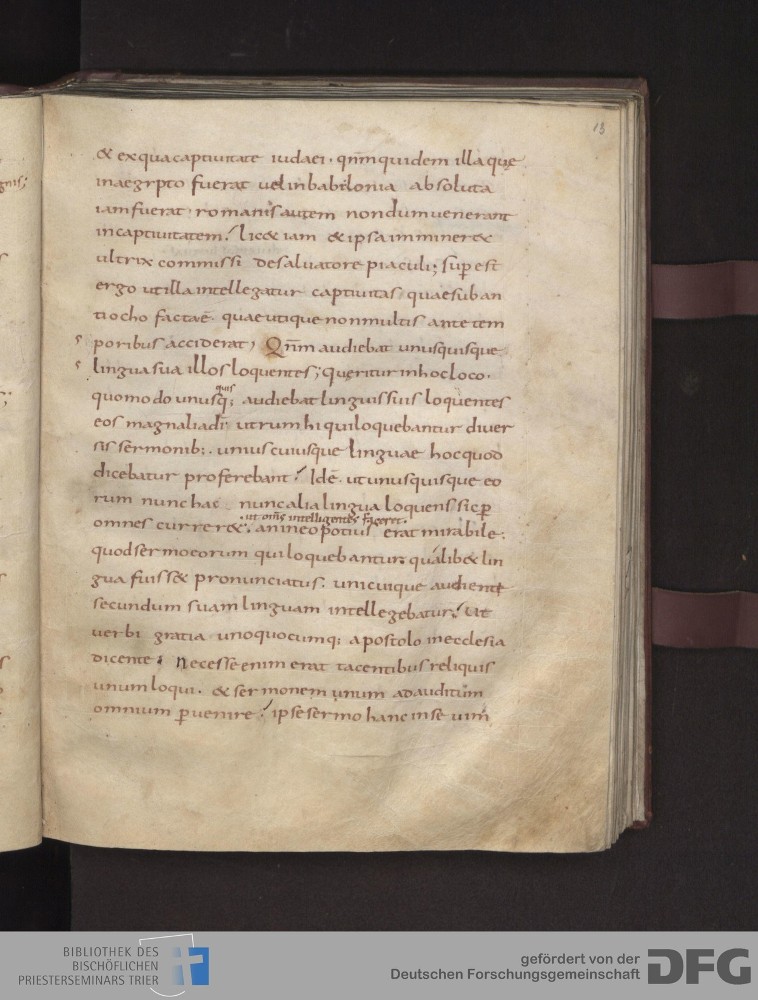 13
& exqua captiuitate iudaei · qnm quidem illa quę
inaegypto fuerat uel inbabilonia absoluta
iam fuerat · romanis autem nondum uenerant
incaptiuitatem; lic& iam & ipsa imminer&
ultrix commissi desaluatore piaculi; sup est
ergo ut illa intellegatur captiuitas quae suban
tiocho factaē · quae utique nonmultis ante tem
poribus acciderat; Qnm audiebat unusquisque
lingua sua illos loquentes; queritur inhocloco ·
quis
quomodo unusq; audiebat linguis suis loquentes
eos magnalia dī utrum hi qui loquebantur diuer
sis sermonib; · unius cuiusque linguae hoc quod
dicebatur proferebant; Idē · ut unusquisque eo
rum nunc hac nunc alia lingua loquens sic p̄
ut om̄s intelligentes faceret ·
omnes currer& · an ineo potius erat mirabile ·
quod sermo eorum qui loquebantur qualib& lin
gua fuiss& pronunciatus · unicuique audienti
secundum suam linguam intellegebatur; Ut
uerbi gratia unoquocumq; apostolo inecclesia
dicente · Necesse enim erat tacentibus reliquis
unum loqui · & sermonem unum adauditum
omnium p̄uenire; ipse sermo hanc inse uim
BIBLIOTHEK DES
BISCHÖFLICHEN
PRIESTERSEMINARS TRIER
gefördert von der
Deutschen Forschungsgemeinschaft
DFG